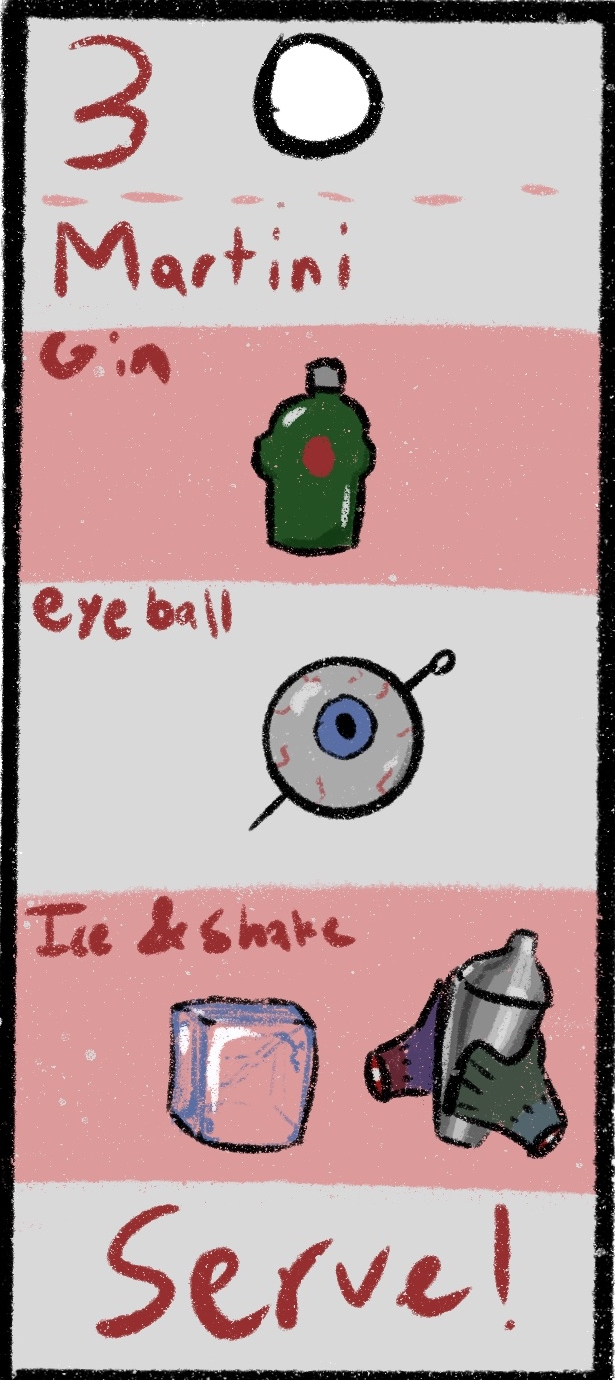 3
Martini
Gin
eyeball
Ice & shake
Serve!